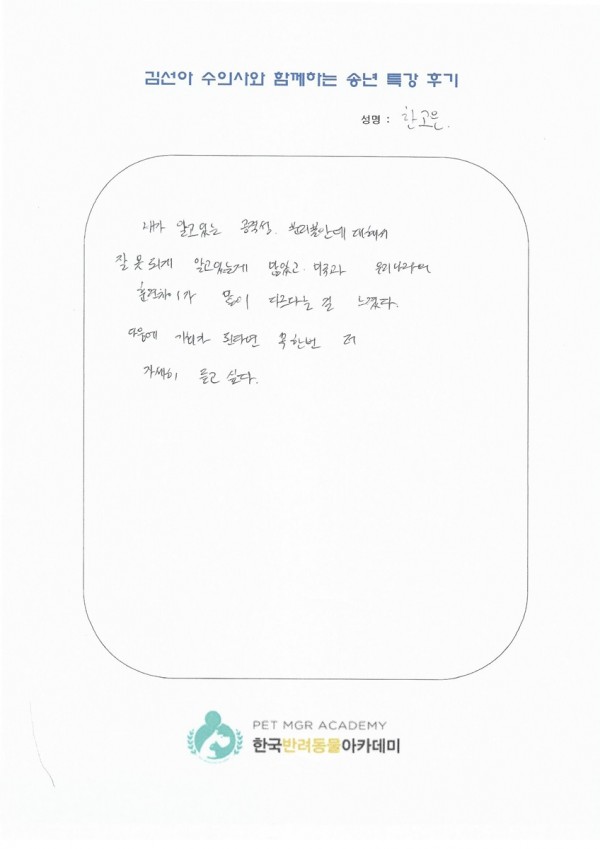 김선아 수의사와 함께하는 송년 특강 후기
성명 : 한고은.
내가 알고있는 공격성. 분리불안에 대해서
잘못되게 알고있는게 많았고. 미국과 우리나라의
훈련차이가 많이 다르다는 걸 느꼈다.
다음에 기회가 된다면 꼭한번 더
자세히 듣고 싶다.
PET MGR ACADEMY
한국반려동물아카데미